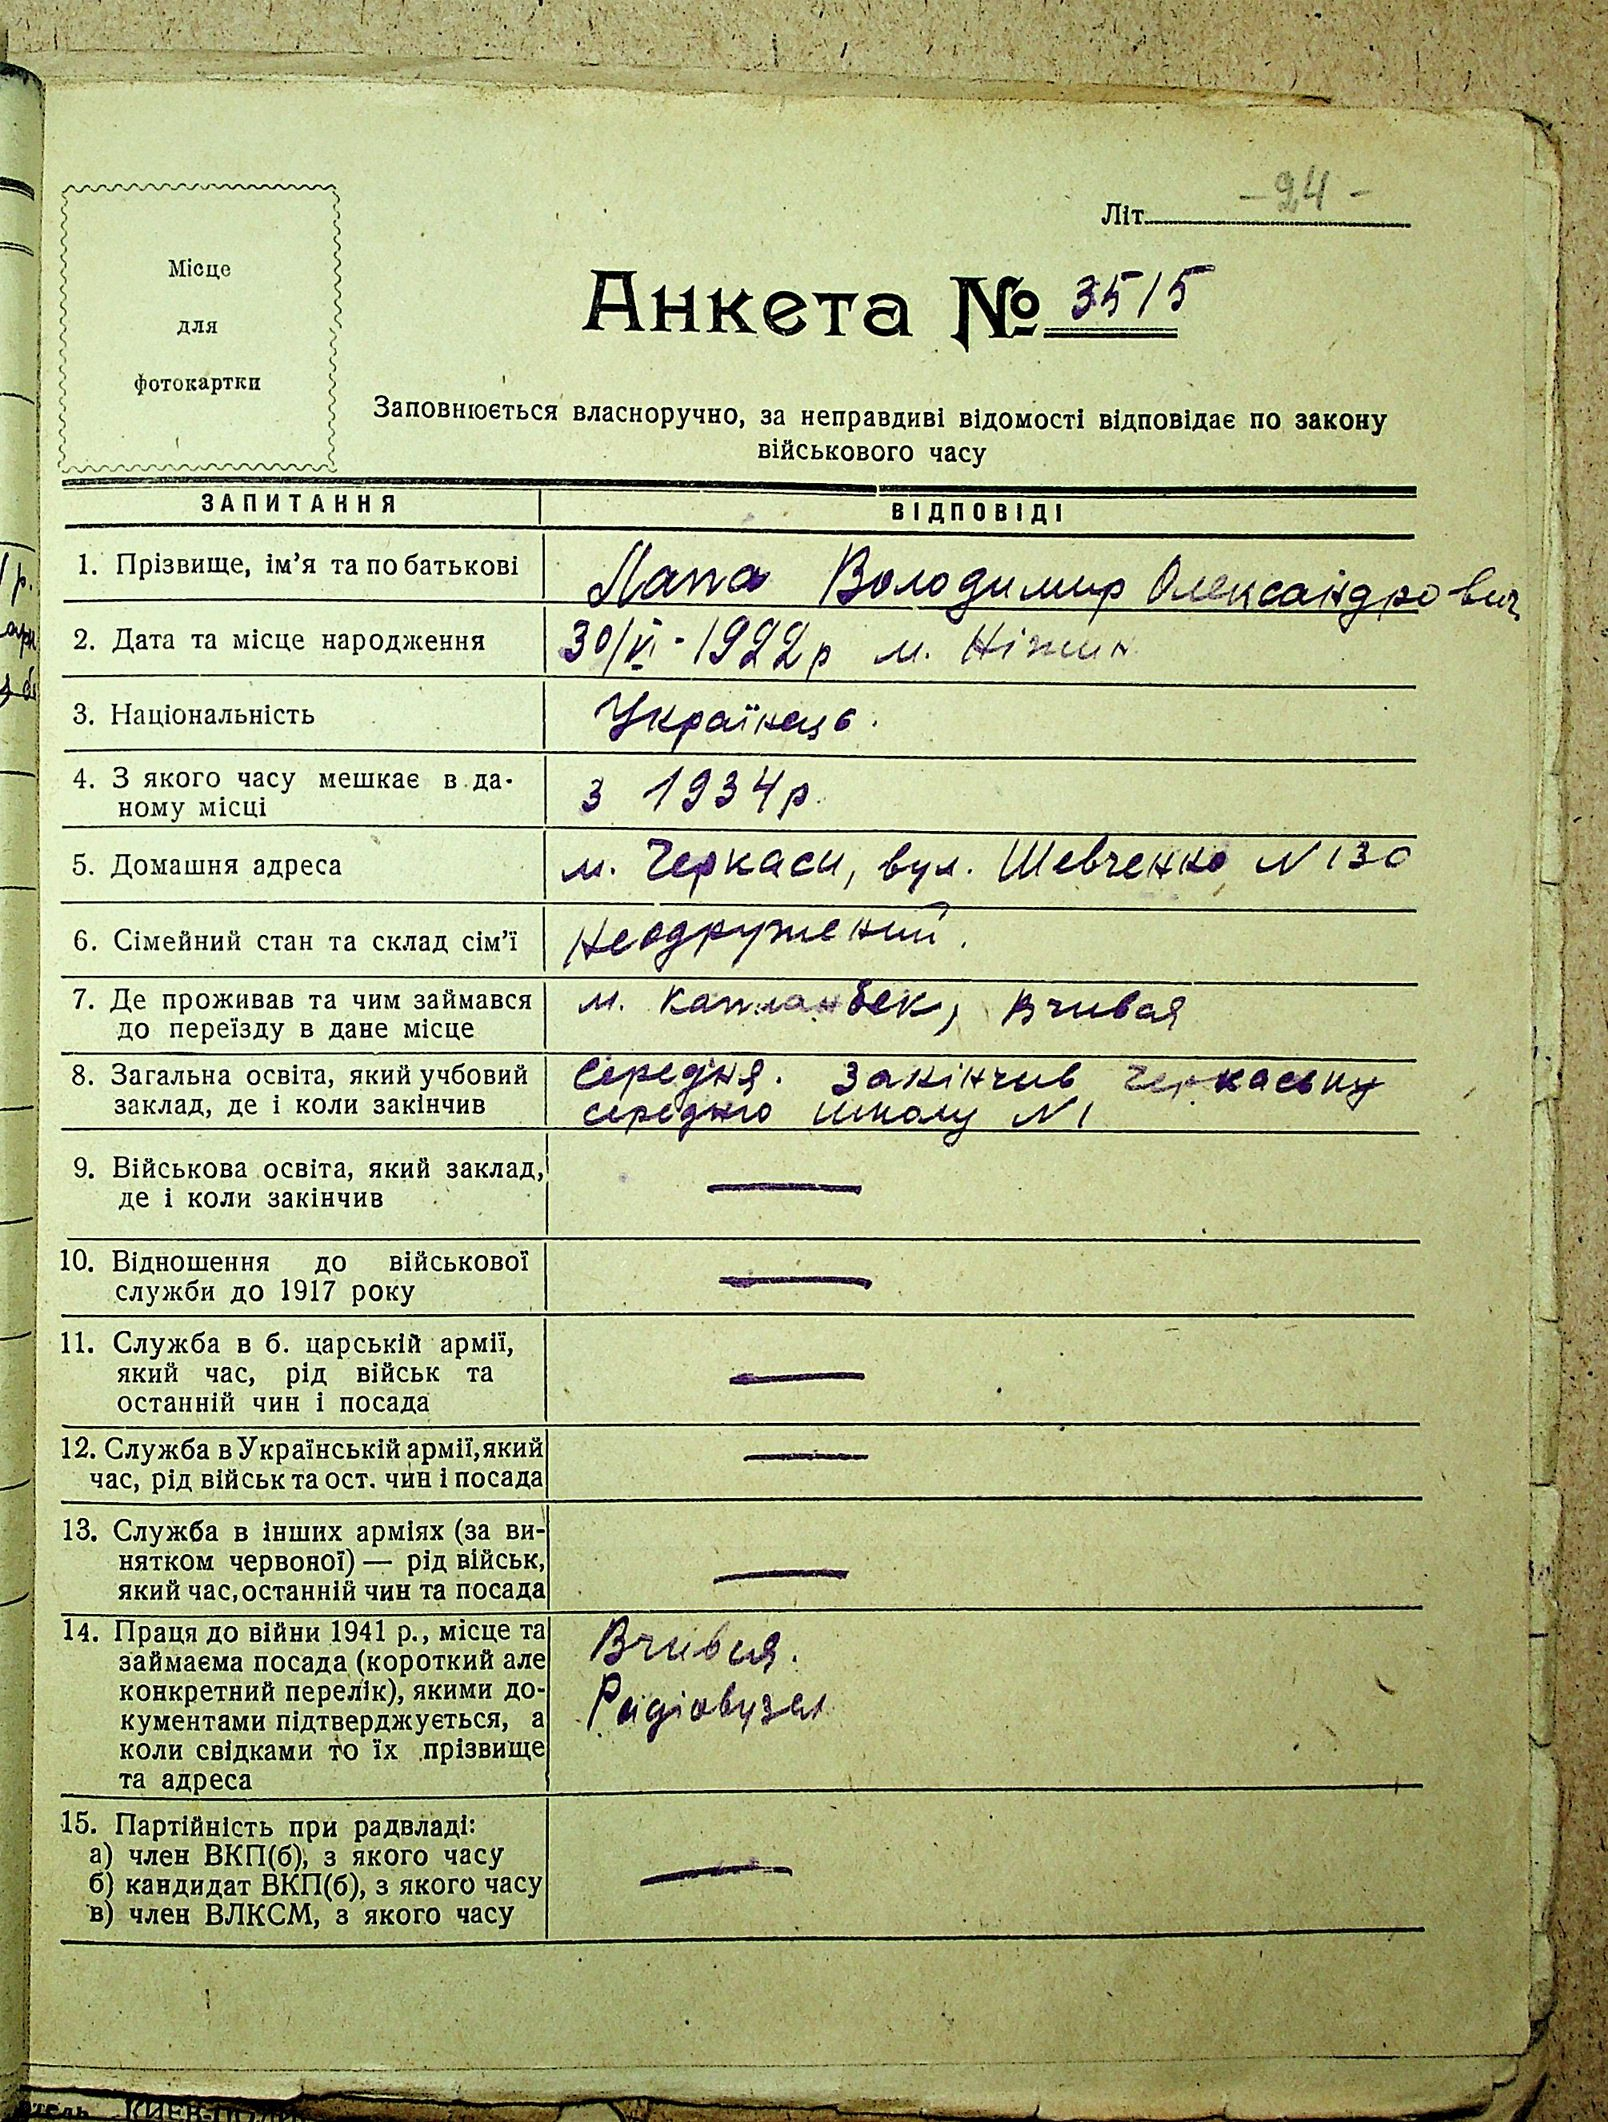 Місце
для
фотокартки
Літ. -24-
Анкета № 3515
Заповнюється власноручно, за неправдиві відомості відповідає по закону
військового часу
ЗАПИТАННЯ ВІДПОВІДІ
1. Прізвище, ім'я та по батькові Лапа Володимир Олександрович
2. Дата та місце народження 30/VI-1922р м. Ніжин
3. Національність Українець.
4. З якого часу мешкає в да-
ному місці з 1934р.
5. Домашня адреса м. Черкаси, вул. Шевченко N 130
6. Сімейний стан та склад сім'ї Неодружений.
7. Де проживав та чим займався м. Капланбек, Вчився
до переїзду в дане місце
8. Загальна освіта, який учбовий Середня. Закінчив Черкаську
заклад, де і коли закінчив середню школу N 1
9. Військова освіта, який заклад, —
де і коли закінчив
10. Відношення до військової —
служби до 1917 року
11. Служба в б. царській армії,
який час, рід військ та —
останній чин і посада
12. Служба в Українській армії, який —
час, рід військ та ост. чин і посада
13. Служба в інших арміях (за ви-
нятком червоної) — рід військ, —
який час, останній чин та посада
14. Праця до війни 1941 р., місце та Вчився.
займаєма посада (короткий але
конкретний перелік), якими до- Радіовузел
кументами підтверджується, а
коли свідками то їх прізвище
та адреса
15. Партійність при радвладі:
а) член ВКП(б), з якого часу —
б) кандидат ВКП(б), з якого часу
в) член ВЛКСМ, з якого часу